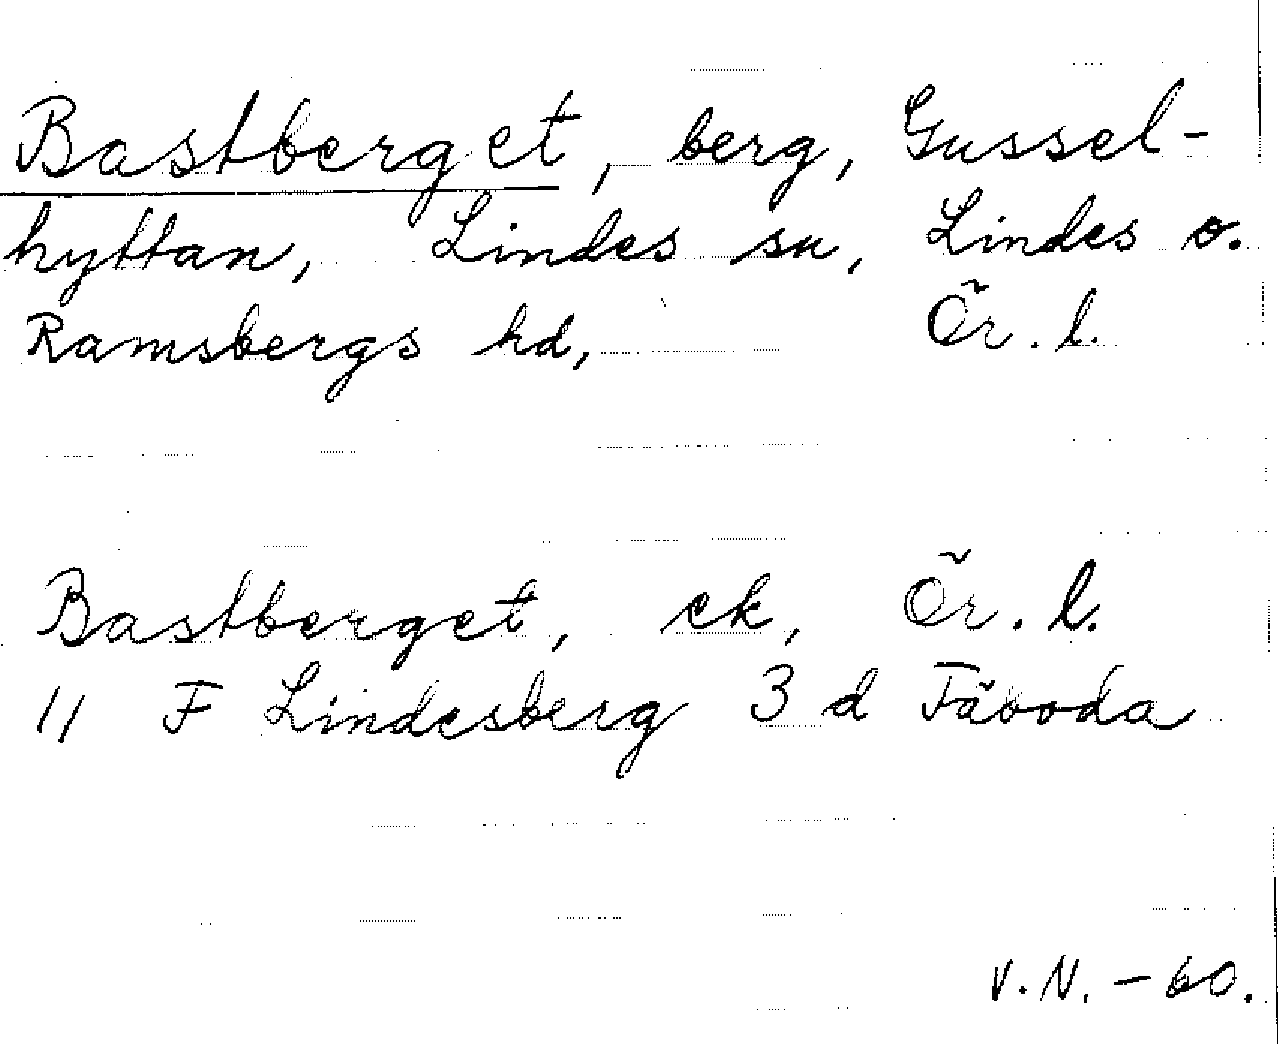 Bastberget, berg, Gussel-
hyttan, Lindes sn, Lindes o.
Ramsbergs hd, Ör. l.
Bastberget, ek, Ör. l.
11 F Lindesberg 3 d Fäboda
V.N. - 60.